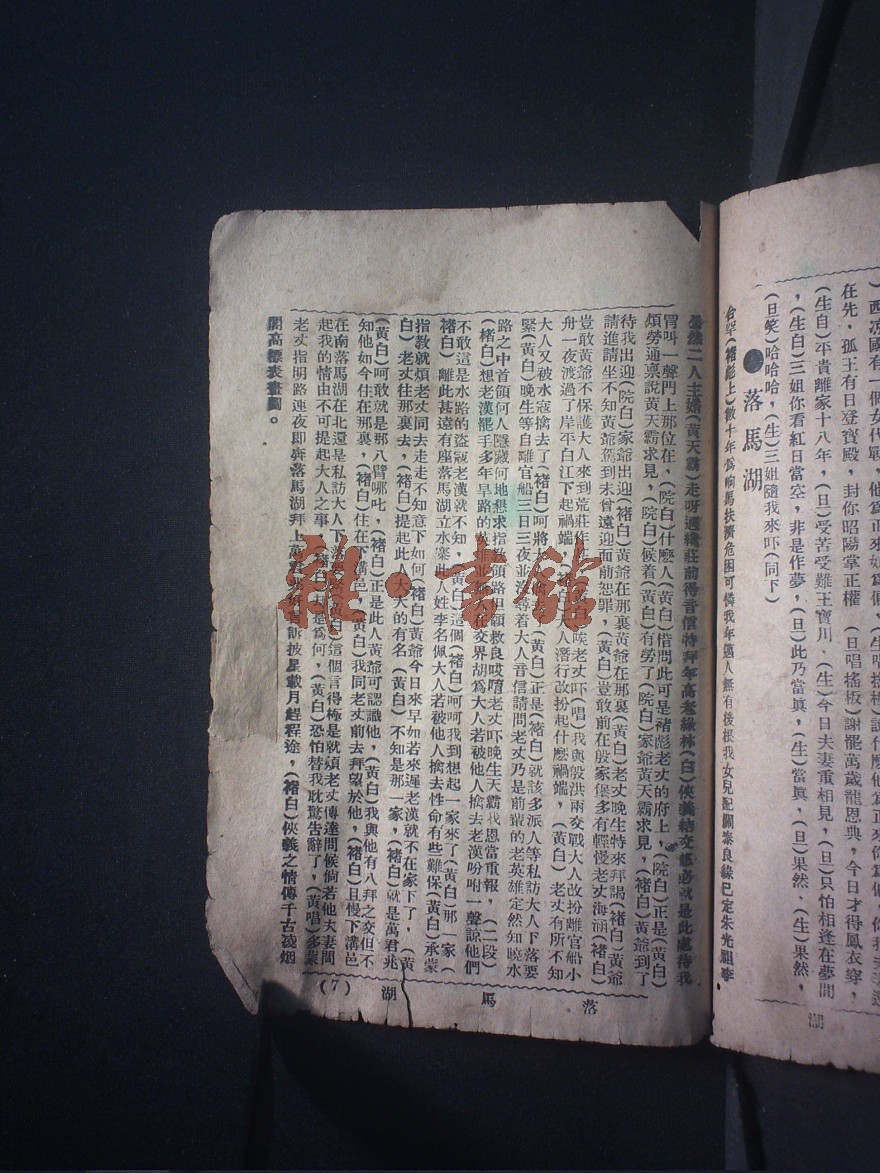 )西凉國有一個女代戰，他爲正來
在先，孤王有日登寶殿，封你昭陽掌正權　(旦唱搖板)謝罷萬歲龍恩典，今日才得鳳衣穿，
(生白)平貴離家十八年，(旦)受苦受難王寶川，(生)今日夫妻重相見，(旦)只怕相逢在夢間
，(生白)三姐你看紅日當空，非是作夢，(旦)此乃當眞，(生)當眞，(旦)果然，(生)果然，
(旦笑)哈哈哈，(生)三姐隨我來吓(同下)
落馬湖
台罕(褚彪上)數十年爲响馬扶濟危困可憐我年邁人無有後根我女兒配關泰良緣已定朱光祖李
然二人主婚(黃天霸)走呀過褚莊前得音信特拜年高老綠林(白)俠義結交就是此處待我
冐叫一聲門上那位在，(院白)什麽人(黃白)借問此可是褚彪老丈的府上，(院白)正是(黃白)
煩勞通禀說黃天霸求見，(院白)候着(黃白)有勞了(院白)家爺黃天霸求見，(褚白)黃爺到了
待我出迎(院白)家爺出迎(褚白)黃爺在那裏黃爺在那裏(黃白)老丈晚生特來拜謁(褚白)黃爺
請進請坐不知黃爺駕到未曾遠迎面前恕罪，(黃白)豈敢前在殷家堡多有輕慢老丈海涵(褚白)
豈敢黃爺不保護大人來到荒莊作 唉老丈吓(唱)我與殷洪兩交戰大人改扮離官船小
舟一夜渡過了岸平白江下起禍端， 人潛行改扮起什麽禍端，(黃白)老丈有所不知
大人又被水寇擒去了(褚白)呵將大 (黃白)正是(褚白)就該多派人等私訪大人下落要
緊(黃白)晚生等自離官船三日三夜並 等着大人音信請問老丈乃是前輩的老英雄定然知曉水
路之中首領何人隱藏何地懇求指教頭路但願救良哎唷老丈吓晚生天霸我恩當重報，(二段)
(褚白)想老漢罷手多年旱路的英雄 在交界胡爲大人若被他人擒去老漢吩咐一聲諒他們
不敢這是水路的盜寇老漢就不知，(黃白)這個(褚白)呵呵我到想起一家來了(黃白)那一家(
褚白)離此甚遠有座落馬湖立水寨此人姓李名佩大人若被他人擒去性命有些難保(黃白)承蒙
指教就煩老丈同去走走不知意下如何(褚白)黃爺今日來早如若來遲老漢就不在家下了，(黃
白)老丈往那裏去，(褚白)提起此人大大的有名(黃白)不知是那一家，(褚白)就是萬君兆
(黃白)呵敢就是那八臂哪叱，(褚白)正是此人黃爺可認識他，(黃白)我與他有八拜之交但不
知他如今住在那裏，(褚白)住在下溝邑，(黃白)我同老丈前去拜望於他，(褚白)且慢下溝邑
在南落馬湖在北還是私訪大人下落 (黃白)這個言得極是就煩老丈傳達問候倘若他夫妻問
起我的情由不可提起大人之事，(褚白)却是爲何，(黃白)恐怕替我耽驚告辭了，(黃唱)多蒙
老丈指明路連夜即奔落馬湖拜上萬君兆 訴披星載月趕程途，(褚白)俠義之情傳千古凌烟
閣高標表畫圖。
落馬湖(7)
湖
雜·書館